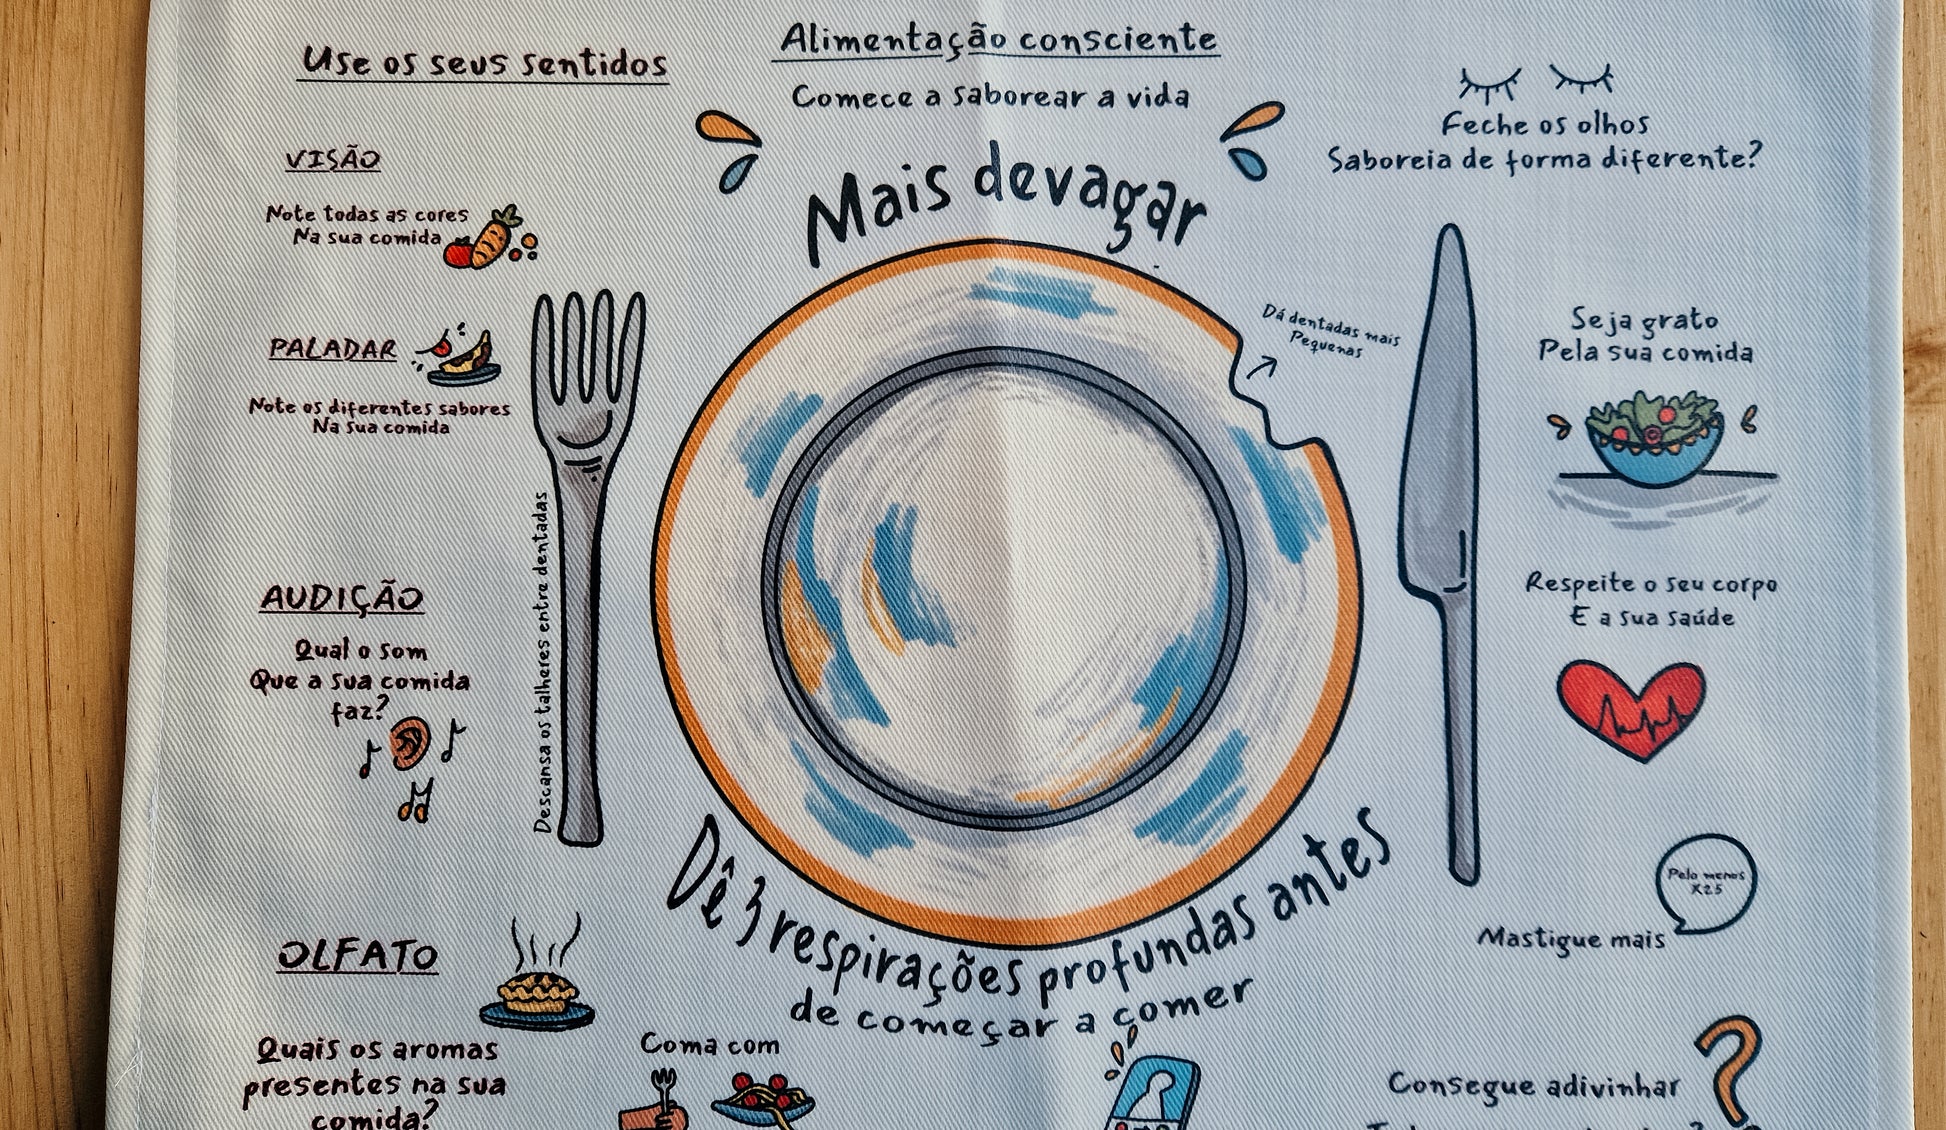 Use os seus sentidos
VISÃO
Note todas as cores
Na sua comida
PALADAR
Note os diferentes sabores
Na sua comida
AUDIÇÃO
Qual o som
Que a sua comida
faz?
OLFATO
Quais os aromas
presentes na sua
comida?
Descansa os talheres entre dentadas
Alimentação consciente
Comece a saborear a vida
Mais devagar
Dá dentadas mais
Pequenas
Dê 3 respirações profundas antes
de começar a comer
Coma com
Feche os olhos
Saboreia de forma diferente?
Seja grato
Pela sua comida
Respeite o seu corpo
E a sua saúde
Pelo menos
X25
Mastigue mais
Consegue adivinhar